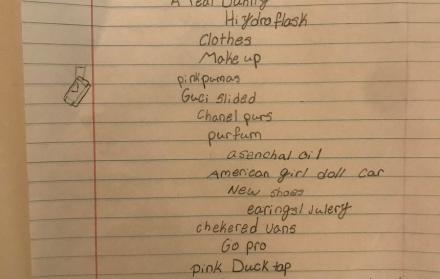 A real Bunny
Hidroflask
Clothes
Make up
pink pumas
Guci slided
Chanel purs
purfum
asenchal oil
American girl doll car
New shoes
earings/ julery
chekered vans
Go pro
pink Duck tap